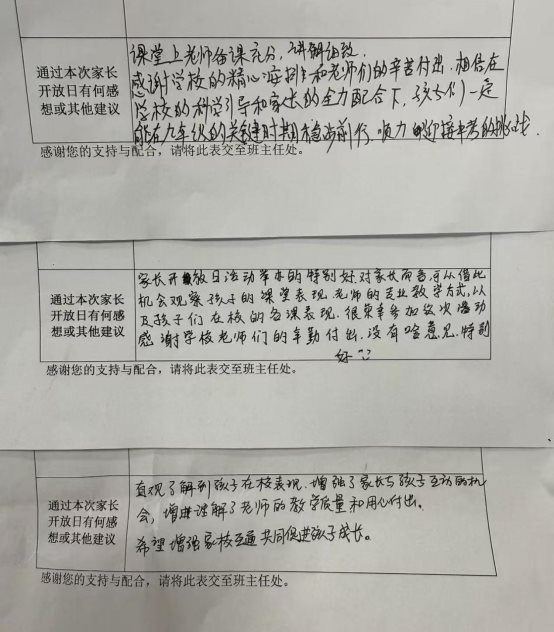 通过本次家长
开放日有何感
想或其他建议
课堂上老师备课充分，讲解细致，
感谢学校的精心安排和老师们的辛苦付出，相信在
学校的科学引导和家长的全力配合下，孩子们一定
能在九年级的关键时期稳步前行，顺力的迎接中考的挑战
感谢您的支持与配合，请将此表交至班主任处。
通过本次家长
开放日有何感
想或其他建议
家长开放日活动举办的特别好对家长而言可以借此
机会观察孩子的课堂表现，老师的专业教学方式，以
及孩子们在校的各课表现，很荣幸参加这次活动
感谢学校老师们的辛勤付出，没有啥意见，特别
好
感谢您的支持与配合，请将此表交至班主任处。
通过本次家长
开放日有何感
想或其他建议
直观了解到孩子在校表现，增强了家长与孩子互动的机
会，增进理解了老师的教学质量和用心付出。
希望增强家校互通共同促进孩子成长。
感谢您的支持与配合，请将此表交至班主任处。